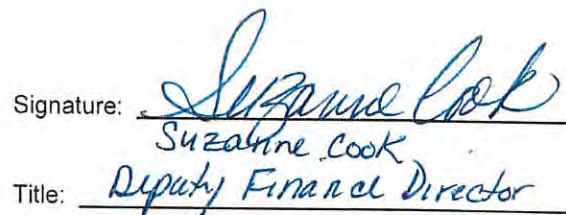 Signature: Suzanne Cook
Suzanne Cook
Title: Deputy Finance Director